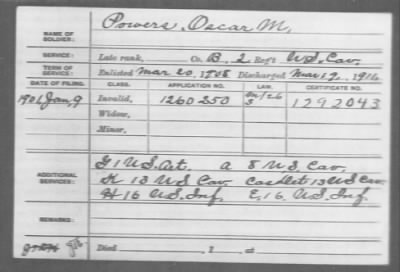 Powers, Oscar M.
NAME OF SOLDIER:
SERVICE: Late rank, Co. B, 2 Reg't U.S. Cav.
TERM OF SERVICE: Enlisted Mar 20, 1908 Discharged Mar 19, 1916
DATE OF FILING. CLASS. APPLICATION NO. LAW. CERTIFICATE NO.
Jan 9 Invalid, 1260250 1292043
Widow,
Minor,
G 1 U.S. Art. a 8 U.S. Cav.
ADDITIONAL SERVICES: K 13 U.S. Cav. 13 U.S. Cav.
H 16 U.S. Inf. E, 16 U.S. Inf.
REMARKS:
Died , 1 , at